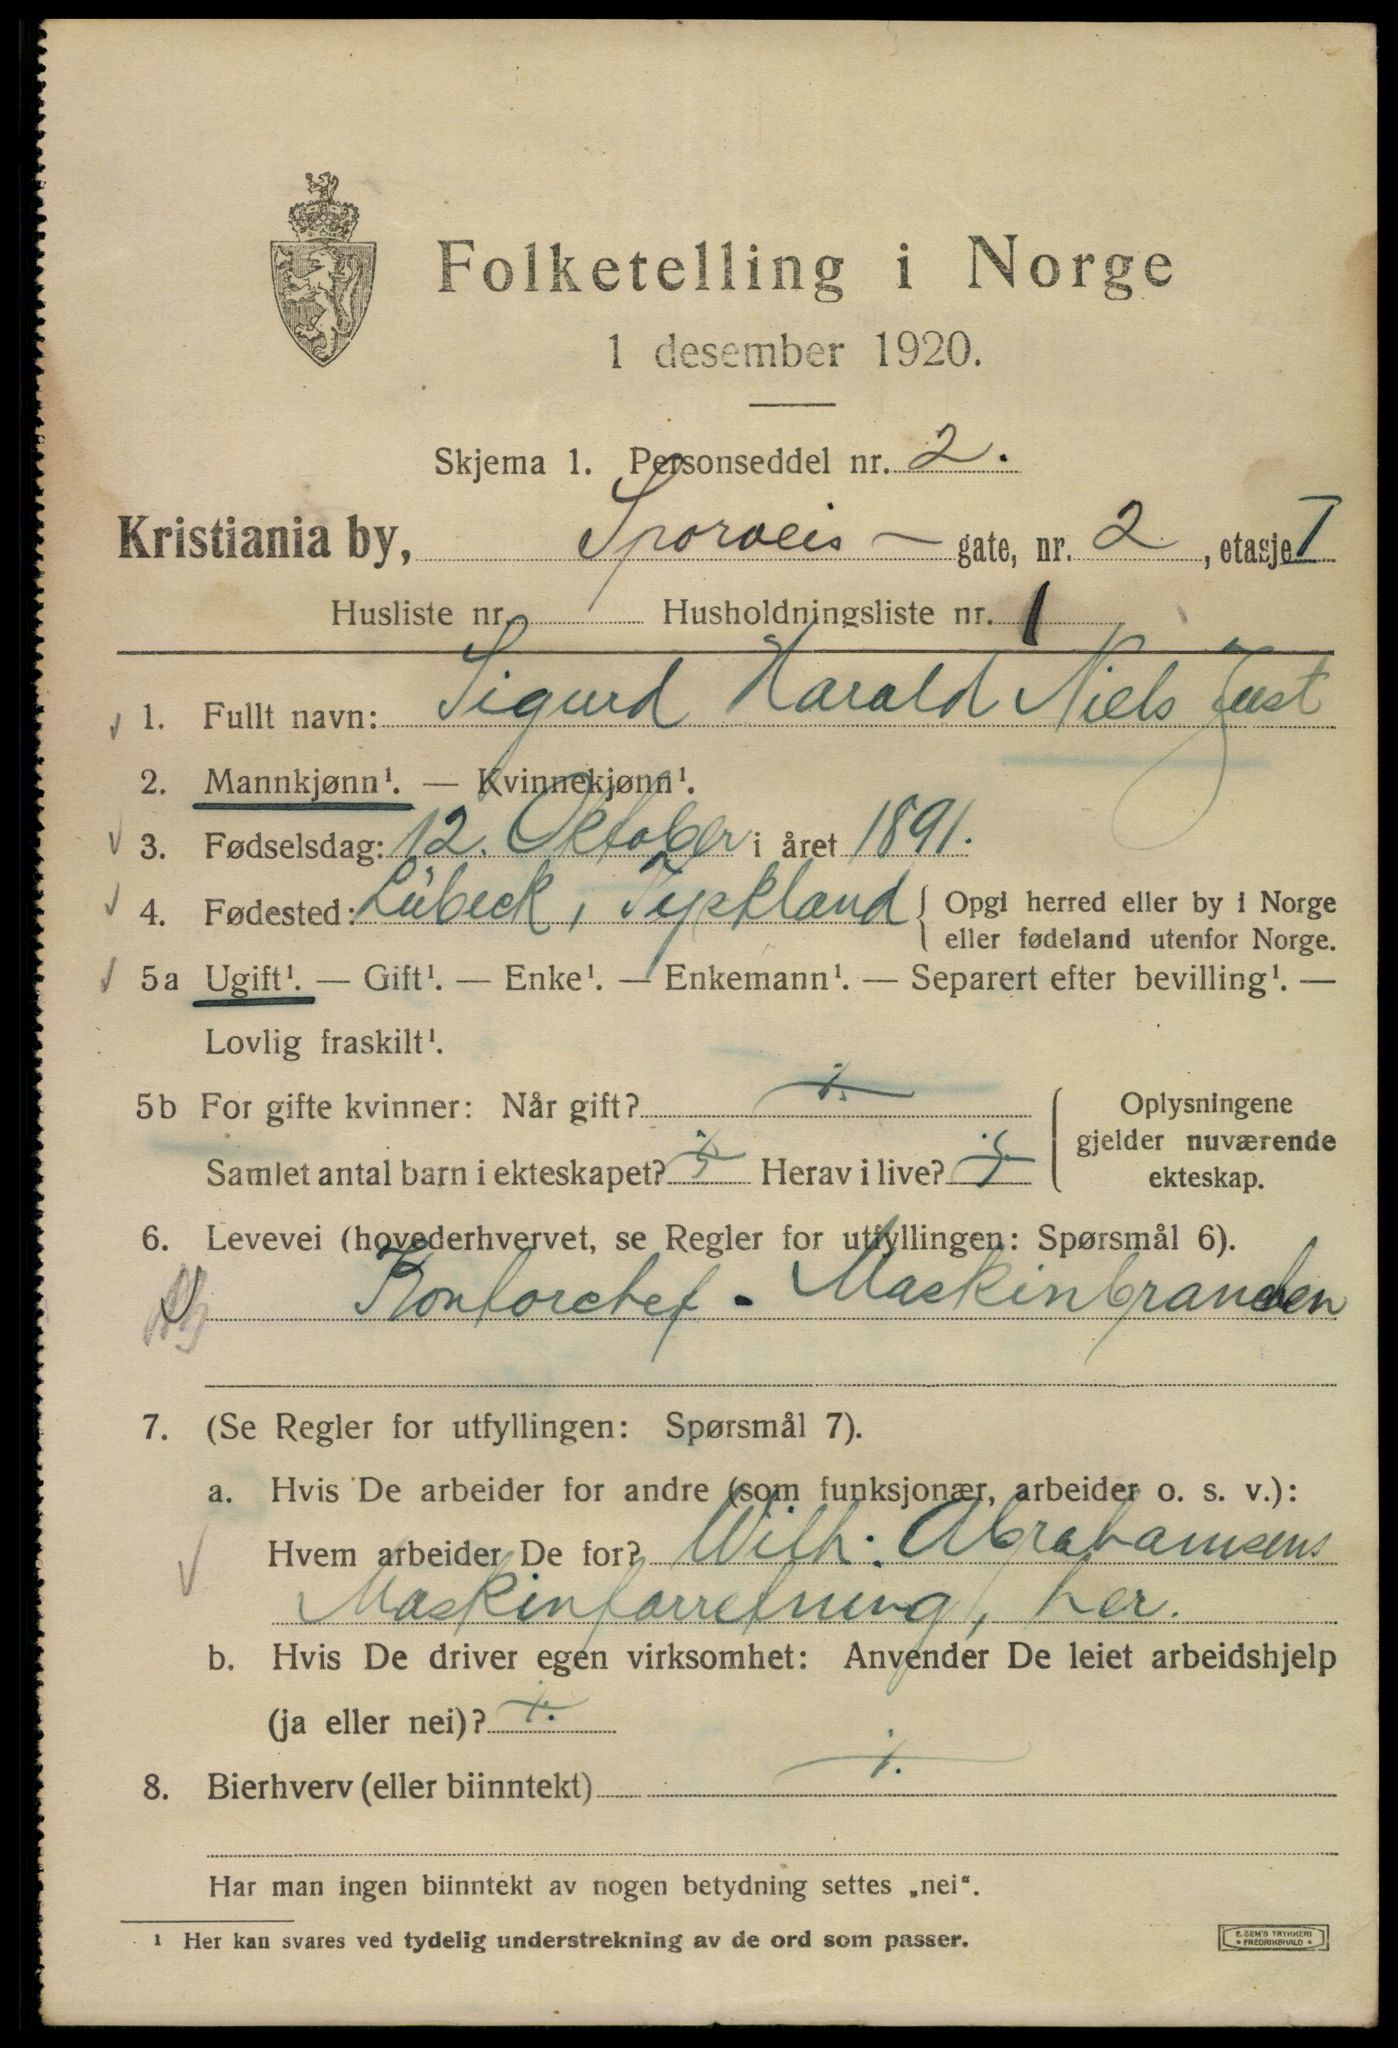 Folketelling i Norge
1 desember 1920.
Skjema 1. Personseddel nr. 2.
Kristiania by, Sporveis - gate, nr. 2, etasje I
Husliste nr. Husholdningsliste nr. 1
1. Fullt navn: Sigurd Harald Niels Just
2. Mannkjønn¹. — Kvinnekjønn¹.
3. Fødselsdag: 12. Oktober i året 1891.
4. Fødested: Lübeck, Tyskland { Opgi herred eller by i Norge
eller fødeland utenfor Norge.
5a Ugift¹. — Gift¹. — Enke¹. — Enkemann¹. — Separert efter bevilling¹. —
Lovlig fraskilt¹.
5b For gifte kvinner: Når gift? ÷
Samlet antal barn i ekteskapet? ÷ Herav i live? ÷
Oplysningene
gjelder nuværende
ekteskap.
6. Levevei (hovederhvervet, se Regler for utfyllingen: Spørsmål 6).
Kontorchef - Maskinbranchen
7. (Se Regler for utfyllingen: Spørsmål 7).
a. Hvis De arbeider for andre (som funksjonær, arbeider o. s. v.):
Hvem arbeider De for? Wilh. Abrahamsens
Maskinforretning, her.
b. Hvis De driver egen virksomhet: Anvender De leiet arbeidshjelp
(ja eller nei)? ÷
8. Bierhverv (eller biinntekt) ÷
Har man ingen biinntekt av nogen betydning settes „nei“.
¹ Her kan svares ved tydelig understrekning av de ord som passer.
E. SEM'S TRYKKERI
• FREDRIKSHALD •